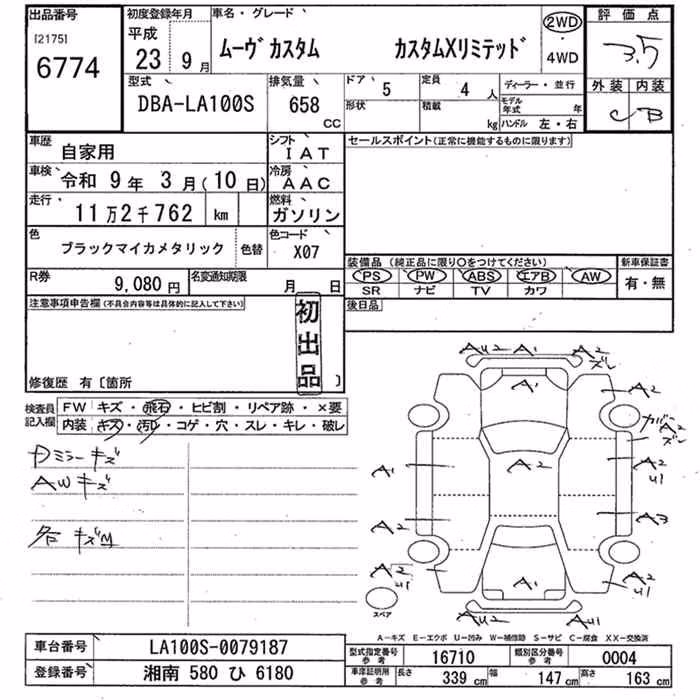 出品番号 初度登録年月 車名・グレード 2WD 評価点
[2175] 平成
6774 23年9月 ムーヴカスタム カスタムXリミテッド 4WD 3.5
型式 排気量 ドア 5 定員 4人 ディーラー・並行 外装 内装
DBA-LA100S 658 CC 形状 積載 kg モデル年式 年 C B
ハンドル 左・右
車歴 自家用 シフト IAT セールスポイント(正常に機能するものに限ります)
車検 令和 9年 3月(10日) 冷房 AAC
走行 11万2千762 km 燃料 ガソリン
色 ブラックマイカメタリック 色替 色コード X07
装備品(純正品に限り○をつけてください) 新車保証書
PS PW ABS エアB AW 有・無
SR ナビ TV カワ
R券 9,080円 名変通知期限 月 日
後日品
注意事項申告欄(不具合内容等は具体的に記入して下さい)
初出品
修復歴 有〔箇所 〕
検査員記入欄 FW キズ・飛石・ヒビ割・リペア跡・×要
内装 キズ・汚レ・コゲ・穴・スレ・キレ・破レ
Dミラーキズ
AWキズ
各キズM
AU2 A1 AU2 ズレ
A1 A2
ガバ A2 ズレ
A1 A2 A2 U1
A2 A3
A2 U1 A1 A2 U1
AU2 AU1
スペア
A−キズ E−エクボ U−凹み W−補修跡 S−サビ C−腐食 XX−交換済
車台番号 LA100S-0079187 型式指定番号 参考 16710 類別区分番号 参考 0004
登録番号 湘南 580 ひ 6180 車庫証明用 参考 長さ 339 cm 幅 147 cm 高さ 163 cm